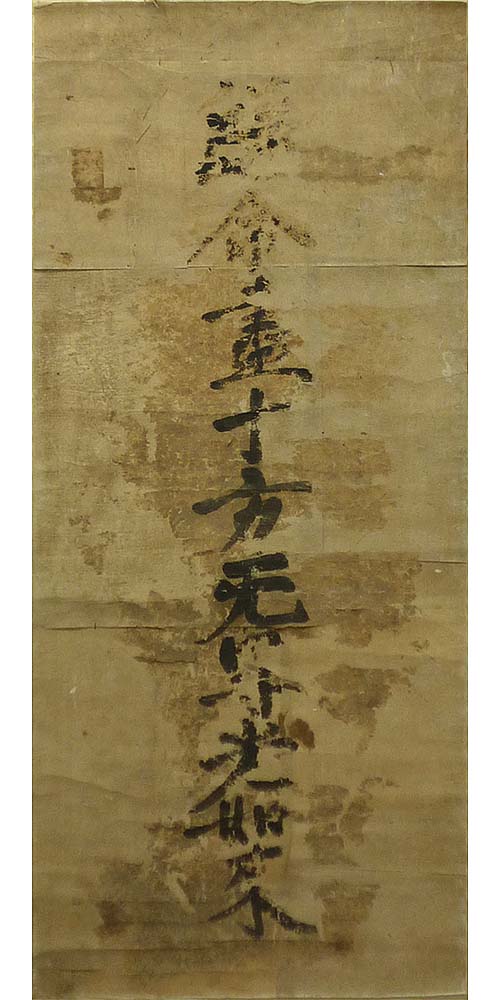 歸命盡十方无碍光如来